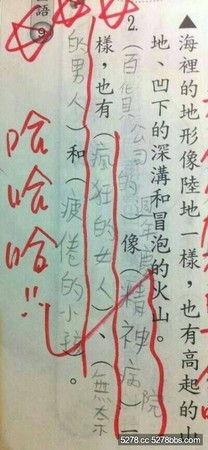 ▲海裡的地形像陸地一樣，也有高起的山
地、凹下的深溝和冒泡的火山。
2.（百貨公司的週年慶）像（精神病院）一
樣，也有（瘋狂的女人）、（無奈
的男人）和（疲倦的小孩）。
哈哈哈!!
語 9
5278.cc 5278bbs.com